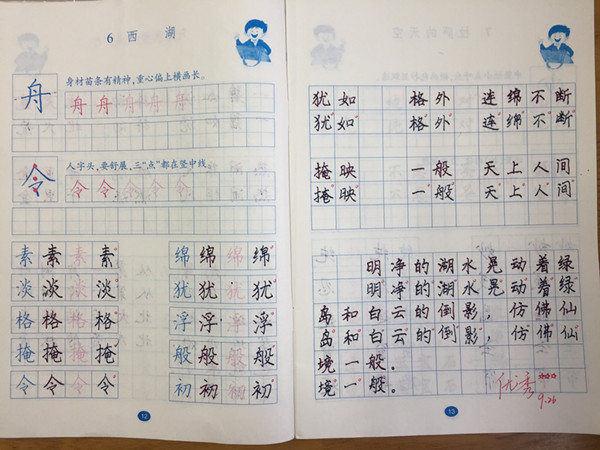 6 西 湖
舟
身材苗条有精神,重心偏上横画长。
舟 舟 舟 舟 舟
令
人字头,要舒展,三“点”都在竖中线。
令 令 令 令 令
素 素 素 素
淡 淡 淡 淡
格 格 格 格
掩 掩 掩 掩
令 令 令 令
绵 绵 绵 绵
犹 犹 犹 犹
浮 浮 浮 浮
般 般 般 般
初 初 初 初
12
犹如 格外 连绵不断
犹如 格外 连绵不断
掩映 一般 天上人间
掩映 一般 天上人间
明净的湖水晃动着绿
明净的湖水晃动着绿
岛和白云的倒影,仿佛仙
岛和白云的倒影,仿佛仙
境一般。
境一般。
优秀
9.26
13